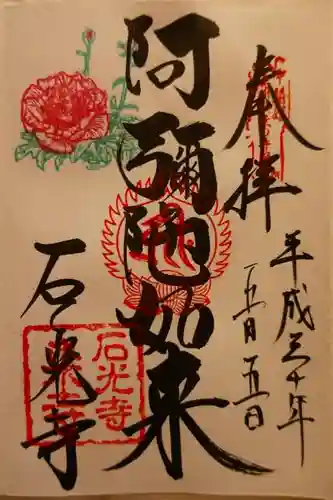 奉拝
平成三十年
五月十五日
阿彌陀如来
石光寺
石光寺